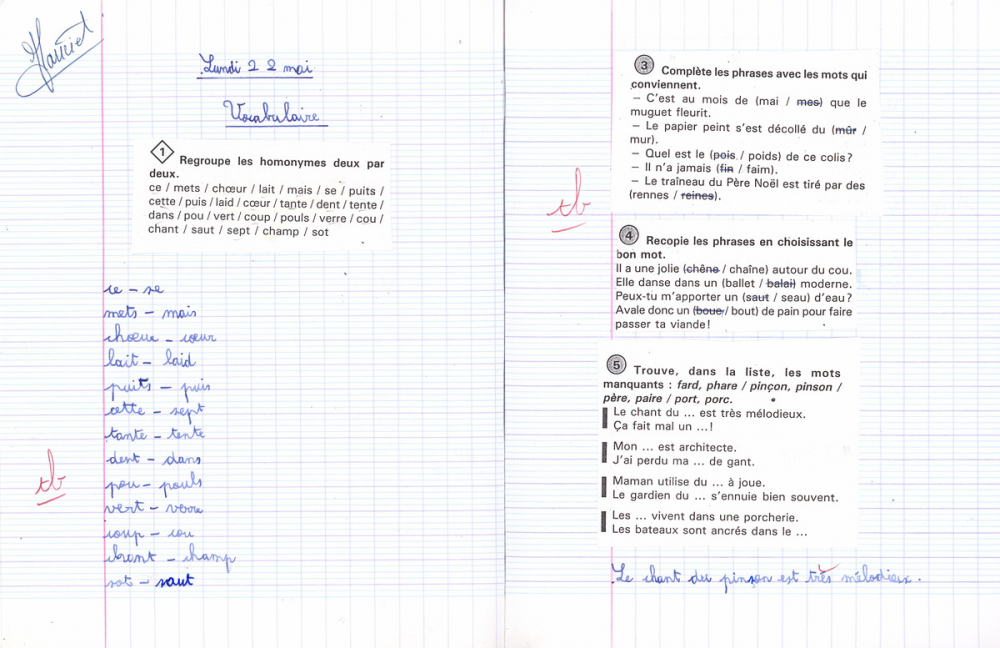 Lundi 22 mai
Vocabulaire
1 Regroupe les homonymes deux par
deux.
ce / mets / chœur / lait / mais / se / puits /
cette / puis / laid / cœur / tante / dent / tente /
dans / pou / vert / coup / pouls / verre / cou /
chant / saut / sept / champ / sot
ce – se
mets – mais
choeur – coeur
lait – laid
puits – puis
cette – sept
tante – tente
dent – dans
pou – pouls
vert – verre
coup – cou
chant – champ
sot – saut
tb
3 Complète les phrases avec les mots qui
conviennent.
– C'est au mois de (mai / mes) que le
muguet fleurit.
– Le papier peint s'est décollé du (mûr /
mur).
– Quel est le (pois / poids) de ce colis?
– Il n'a jamais (fin / faim).
– Le traîneau du Père Noël est tiré par des
(rennes / reines).
tb
4 Recopie les phrases en choisissant le
bon mot.
Il a une jolie (chêne / chaîne) autour du cou.
Elle danse dans un (ballet / balai) moderne.
Peux-tu m'apporter un (saut / seau) d'eau?
Avale donc un (boue / bout) de pain pour faire
passer ta viande!
5 Trouve, dans la liste, les mots
manquants : fard, phare / pinçon, pinson /
père, paire / port, porc.
Le chant du ... est très mélodieux.
Ça fait mal un ...!
Mon ... est architecte.
J'ai perdu ma ... de gant.
Maman utilise du ... à joue.
Le gardien du ... s'ennuie bien souvent.
Les ... vivent dans une porcherie.
Les bateaux sont ancrés dans le ...
Le chant du pinson est très mélodieux.